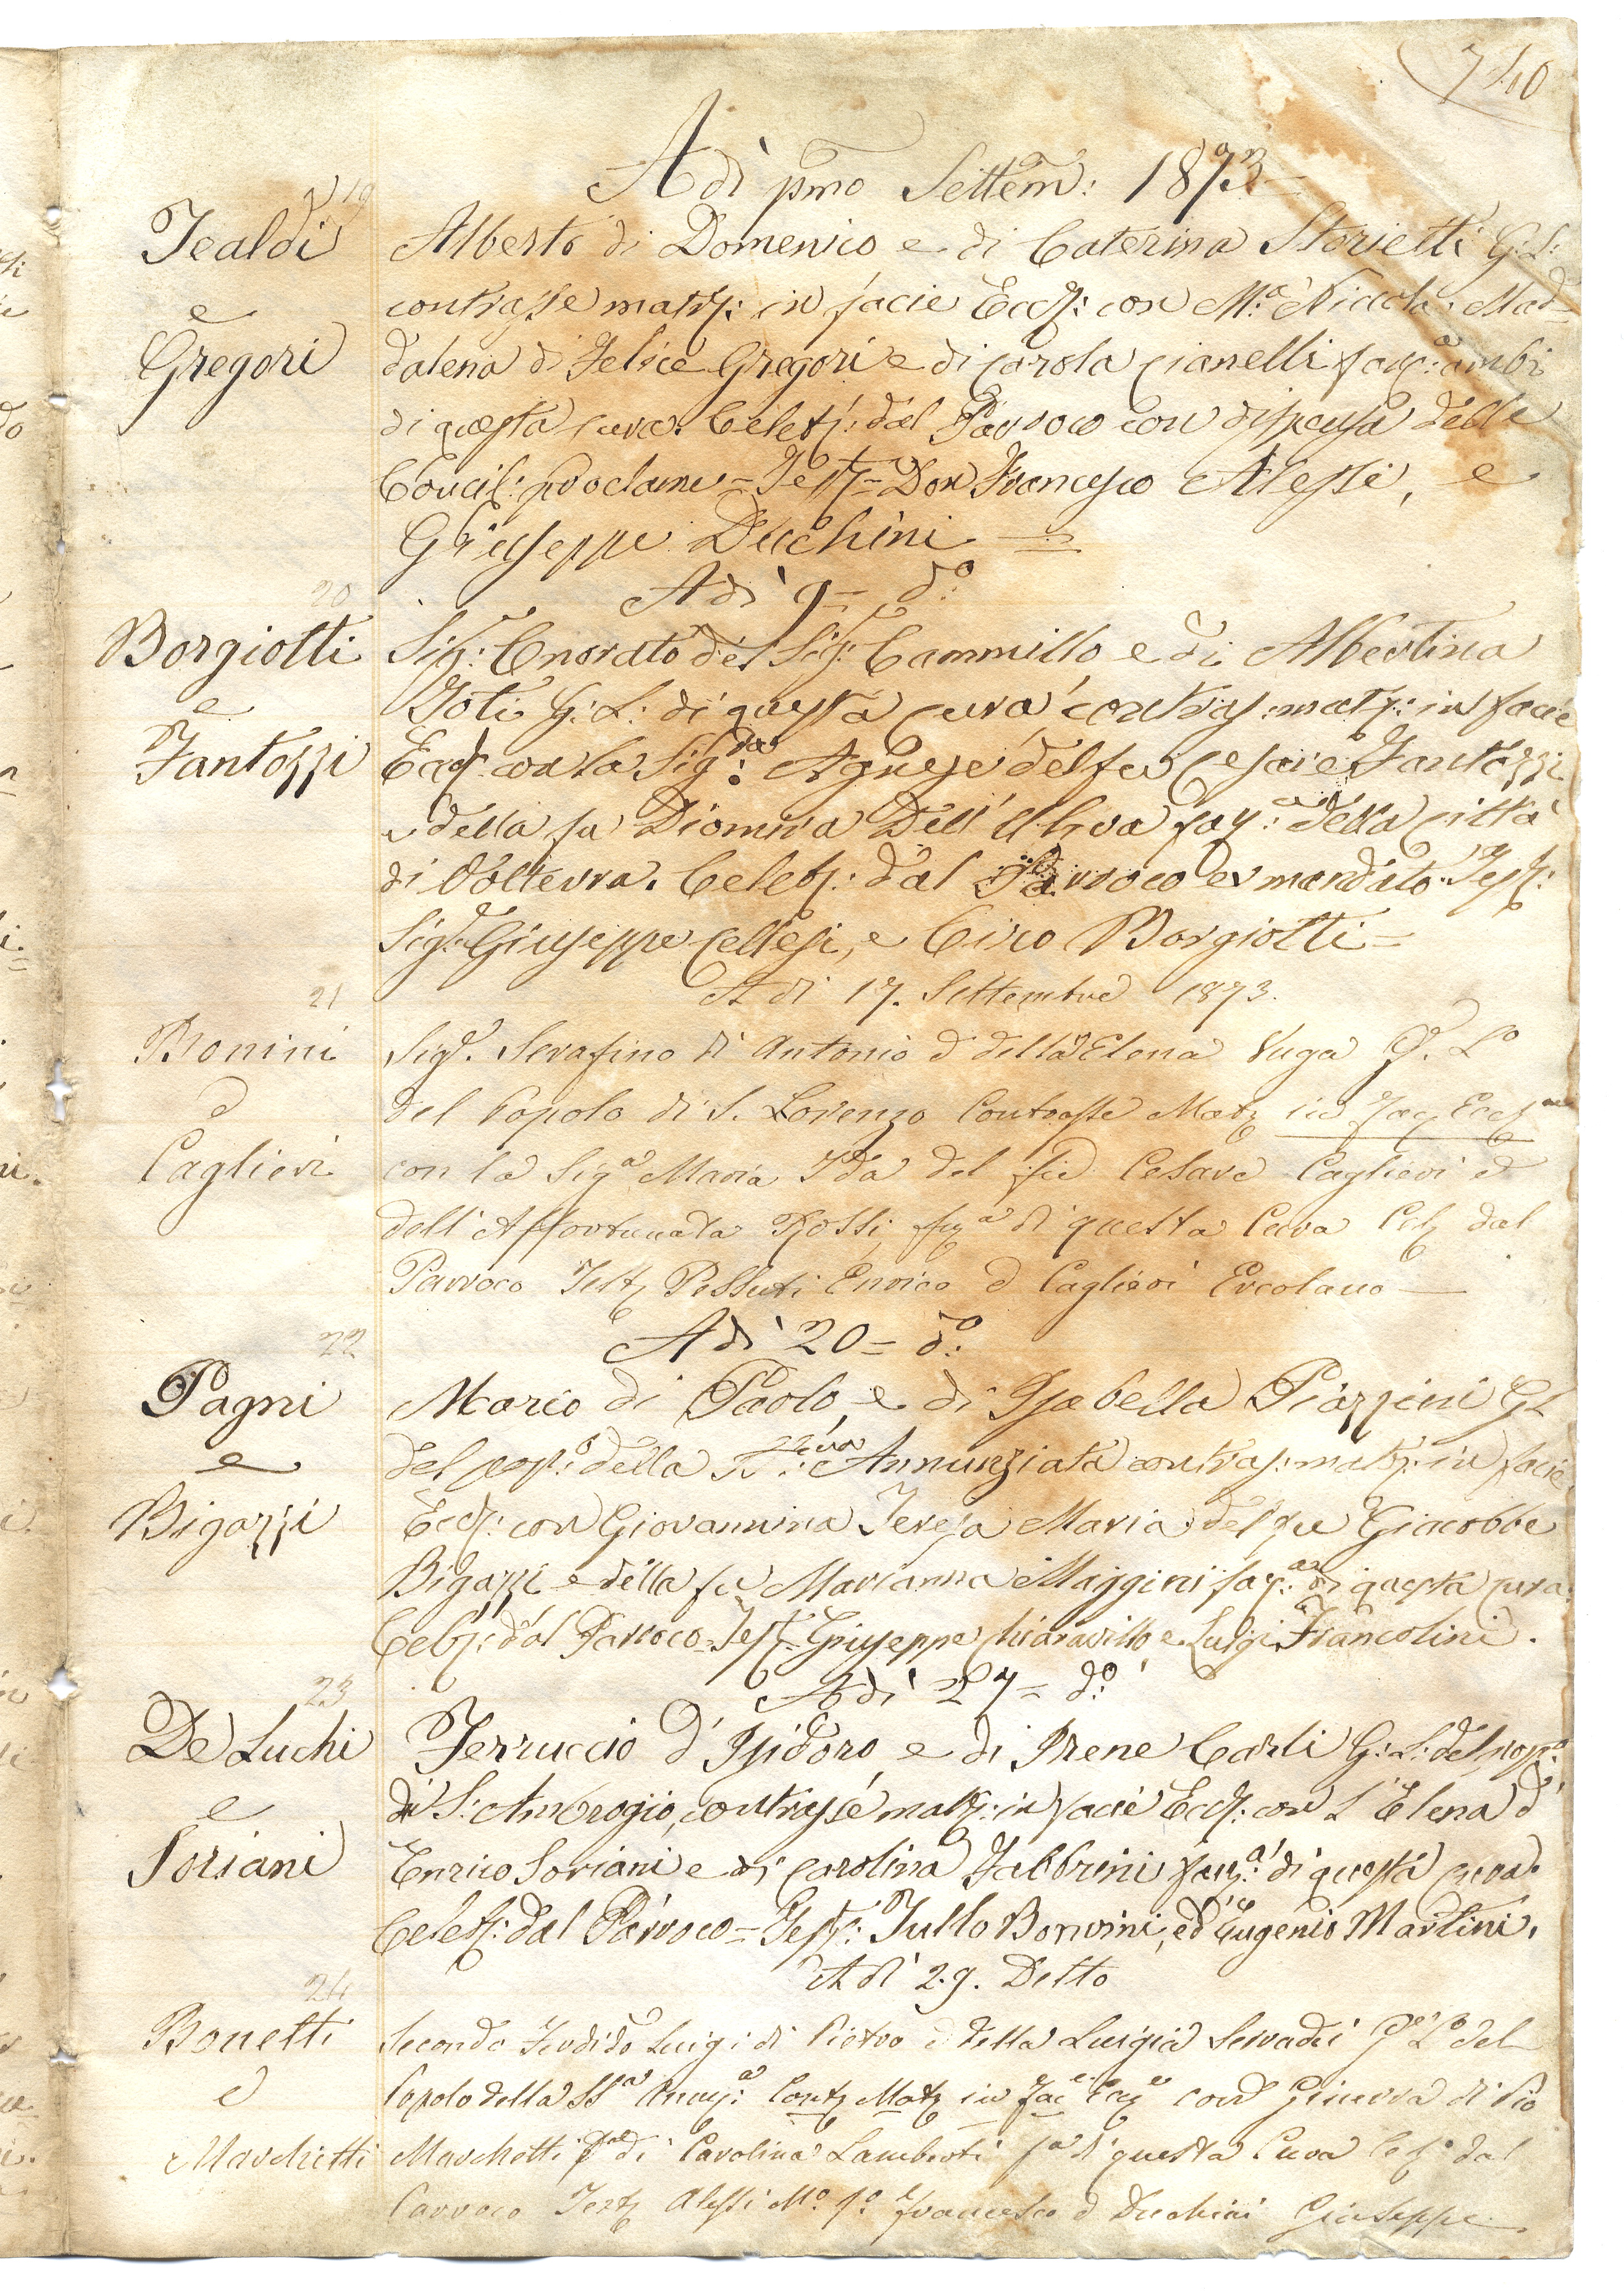 740
Adì pmo Settem: 1873
19
Tealdi
e
Gregori
Alberto di Domenico e di Caterina Storietti G: L:
contrasse matr: in facie Eccl: con Ma Niccola Mad=
dalena di Felice Gregori e di Carola Cianelli fanc:a ambi
di questa cura. Celeb: dal Parroco con dispensa delle
Concil: proclame = Test = Don Francesco Alessi, e
Giuseppe Duchini =
Adì 9 = do:
20
Borgiotti
e
Fantozzi
Sig: Onorato del Sig: Cammillo e di Albertina
Goti G: L: di questa cura contras: matr: in facie
Eccl: con la Sig:ra Agnese del fu Cesare Fantozzi
e della fu Diomira Dell' Uliva fan:a della città
di Volterra. Celeb: dal Parroco ex mandato. Test:
Sigr Giuseppe Cellesi, e Ciro Borgiotti =
A di 17. Settembre 1873.
21
Bonini
e
Caglieri
Sigr. Serafino di Antonio e della Elena Vuga G. Lo
del Popolo di S. Lorenzo Contrasse Matr in Fac Eccl
con la Siga Maria Ida del fu Cesare Caglieri e
dell' Affortunata Rossi, fan a di questa Cura Cel dal
Parroco Test Pessuti Enrico e Caglieri Ercolano
Adì 20 = do:
22
Pagni
e
Bigazzi
Mario di Paolo, e di Isabella Piazzini GL
del pop:o della Annunziata contras: matr: in facie
Eccl: con Giovannina Teresa Maria del fu Giacobbe
Bigazzi e della fu Marianna Maggini fan:a di questa cura.
Celeb: dal Parroco = Test = Giuseppe Chiaravillo e Luigi Francolini.
Adì 27 = do:
23
De Luchi
e
Soriani
Ferruccio d' Isidoro, e di Irene Carli G: L: del pop:o
di S: Ambrogio, contrasse matr: in facie Eccl: con L' Elena d'
Enrico Soriani e di Carolina Fabbrini fan:a di questa cura.
Celeb: dal Parroco = Test: Tullo Bonvini, ed Eugenio Martini.
A di 29. Detto
24
Bonetti
e
Marchetti
Secondo Luigi di Pietro e della Luigia Servadei Ge Lo del
Popolo della SSa Anny: Contr Matr in Fac Ecc con Ginevra di Pio
Marchetti e di Carolina Lamberti fa di questa Cura Cel dal
Parroco Testi Alessi Mo Francesco e Duchini Giuseppe